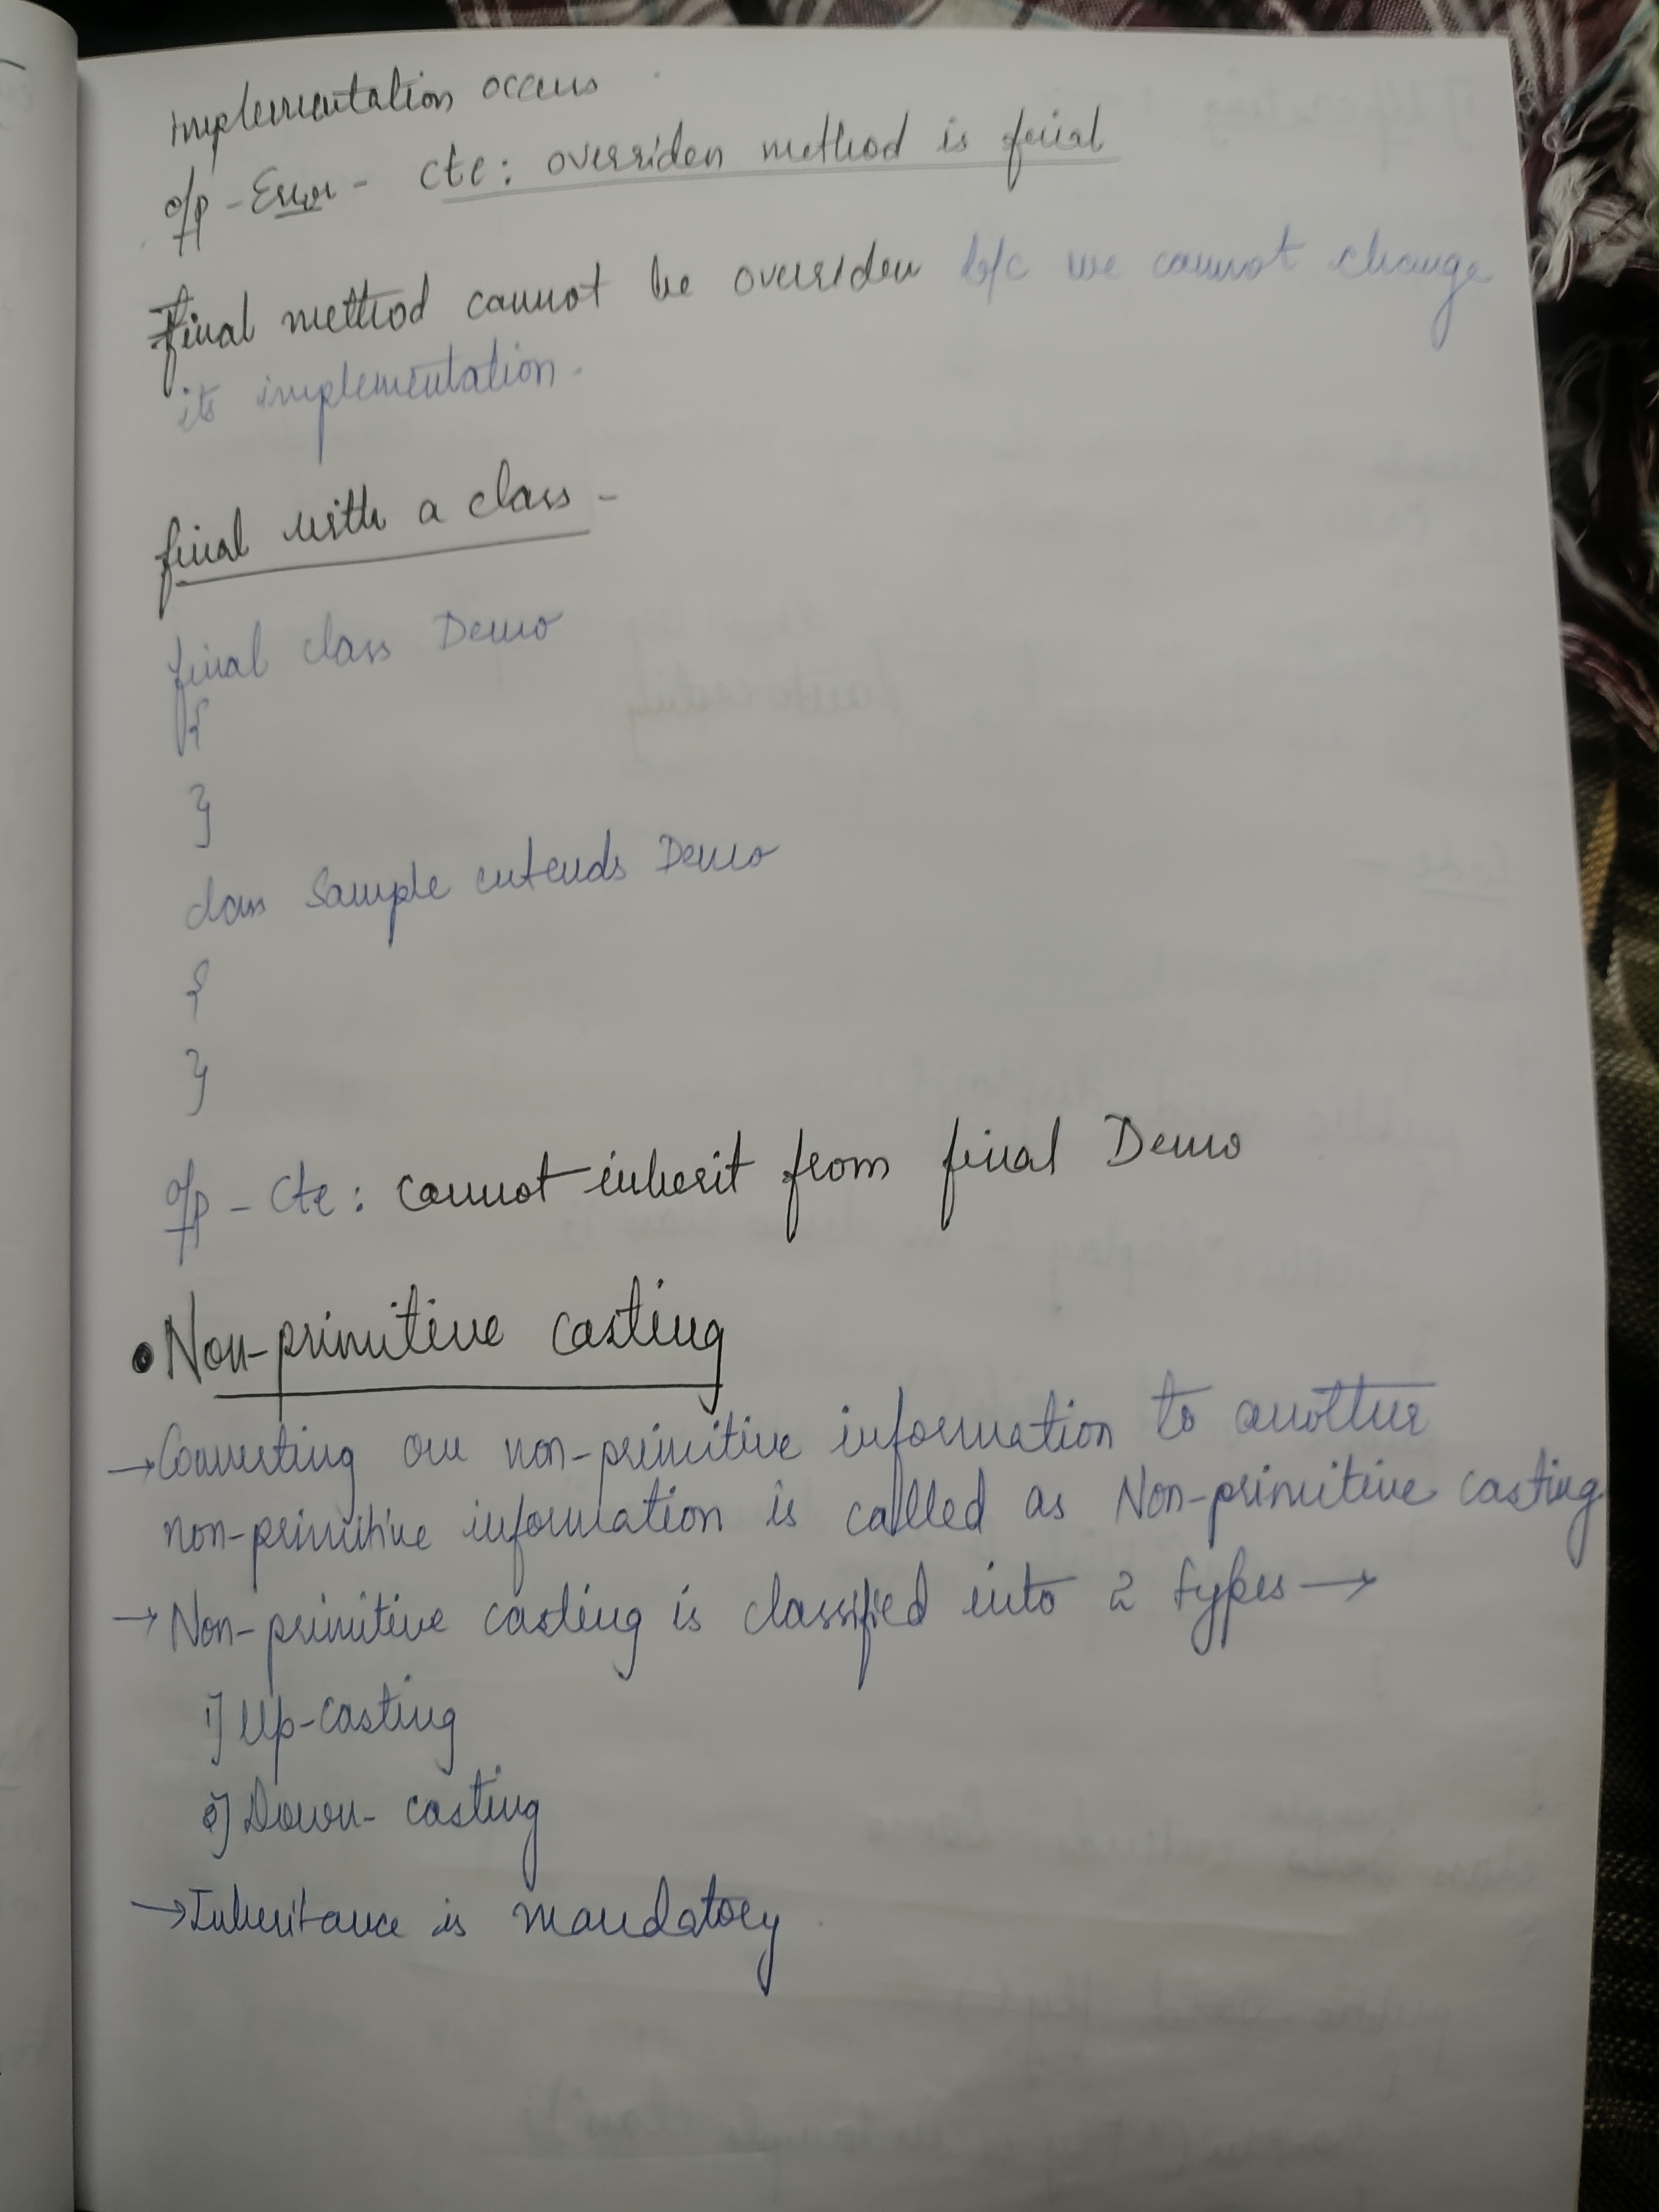 implementation occurs
o/p - Error - cte: overriden method is final
Final method cannot be overriden b/c we cannot change
its implementation.
final with a class -
final class Demo
{
}
class Sample extends Demo
{
}
o/p - Cte: cannot inherit from final Demo
• Non-primitive casting
→ Converting one non-primitive information to another
non-primitive information is called as Non-primitive casting
→ Non-primitive casting is classified into 2 types →
1] Up-casting
2] Down-casting
→ Inheritance is mandatory.